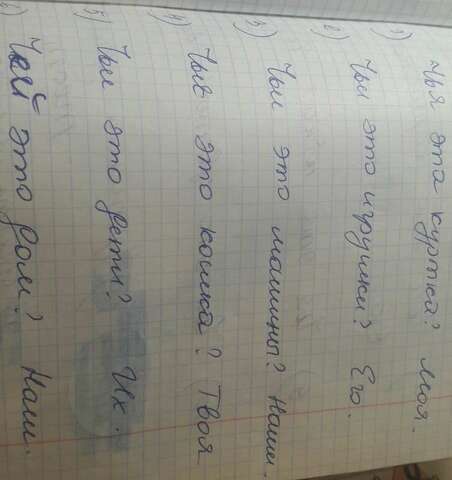 1) Чья эта куртка? Моя.
2) Чьи это игрушки? Его.
3) Чьи это машины? Наши.
4) Чья это кошка? Твоя
5) Чьи это дети? Их.
6) Чей это дом? Наш.